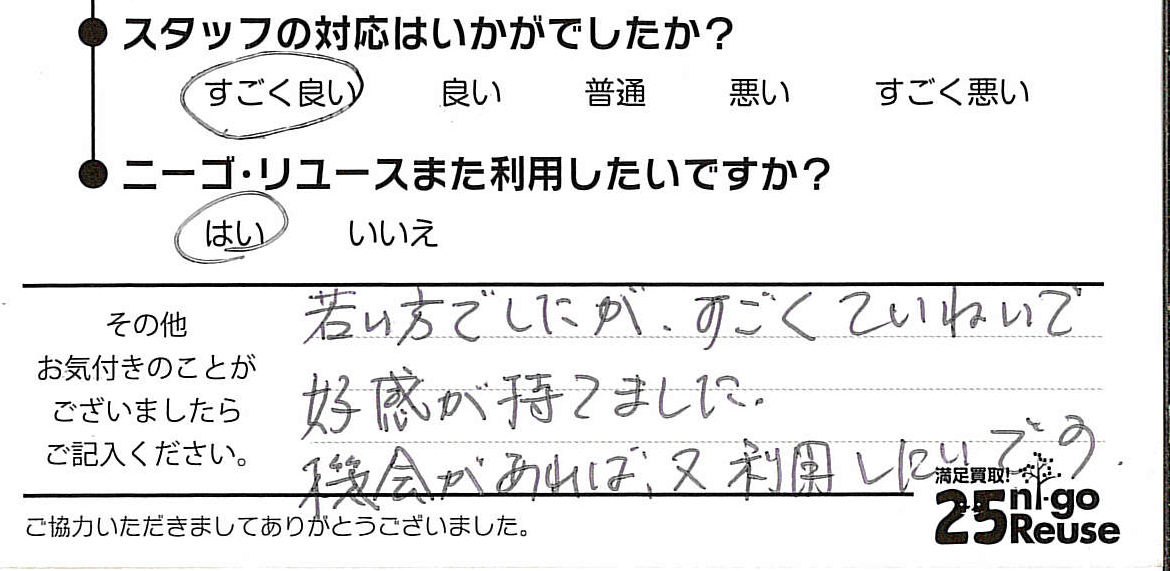 ●スタッフの対応はいかがでしたか？
すごく良い 良い 普通 悪い すごく悪い
●ニーゴ・リユースまた利用したいですか？
はい いいえ
その他
お気付きのことが
ございましたら
ご記入ください。
若い方でしたが、すごくていねいで
好感が持てました.
機会があれば、又利用したいです.
ご協力いただきましてありがとうございました。
満足買取!
25 ni-go
Reuse